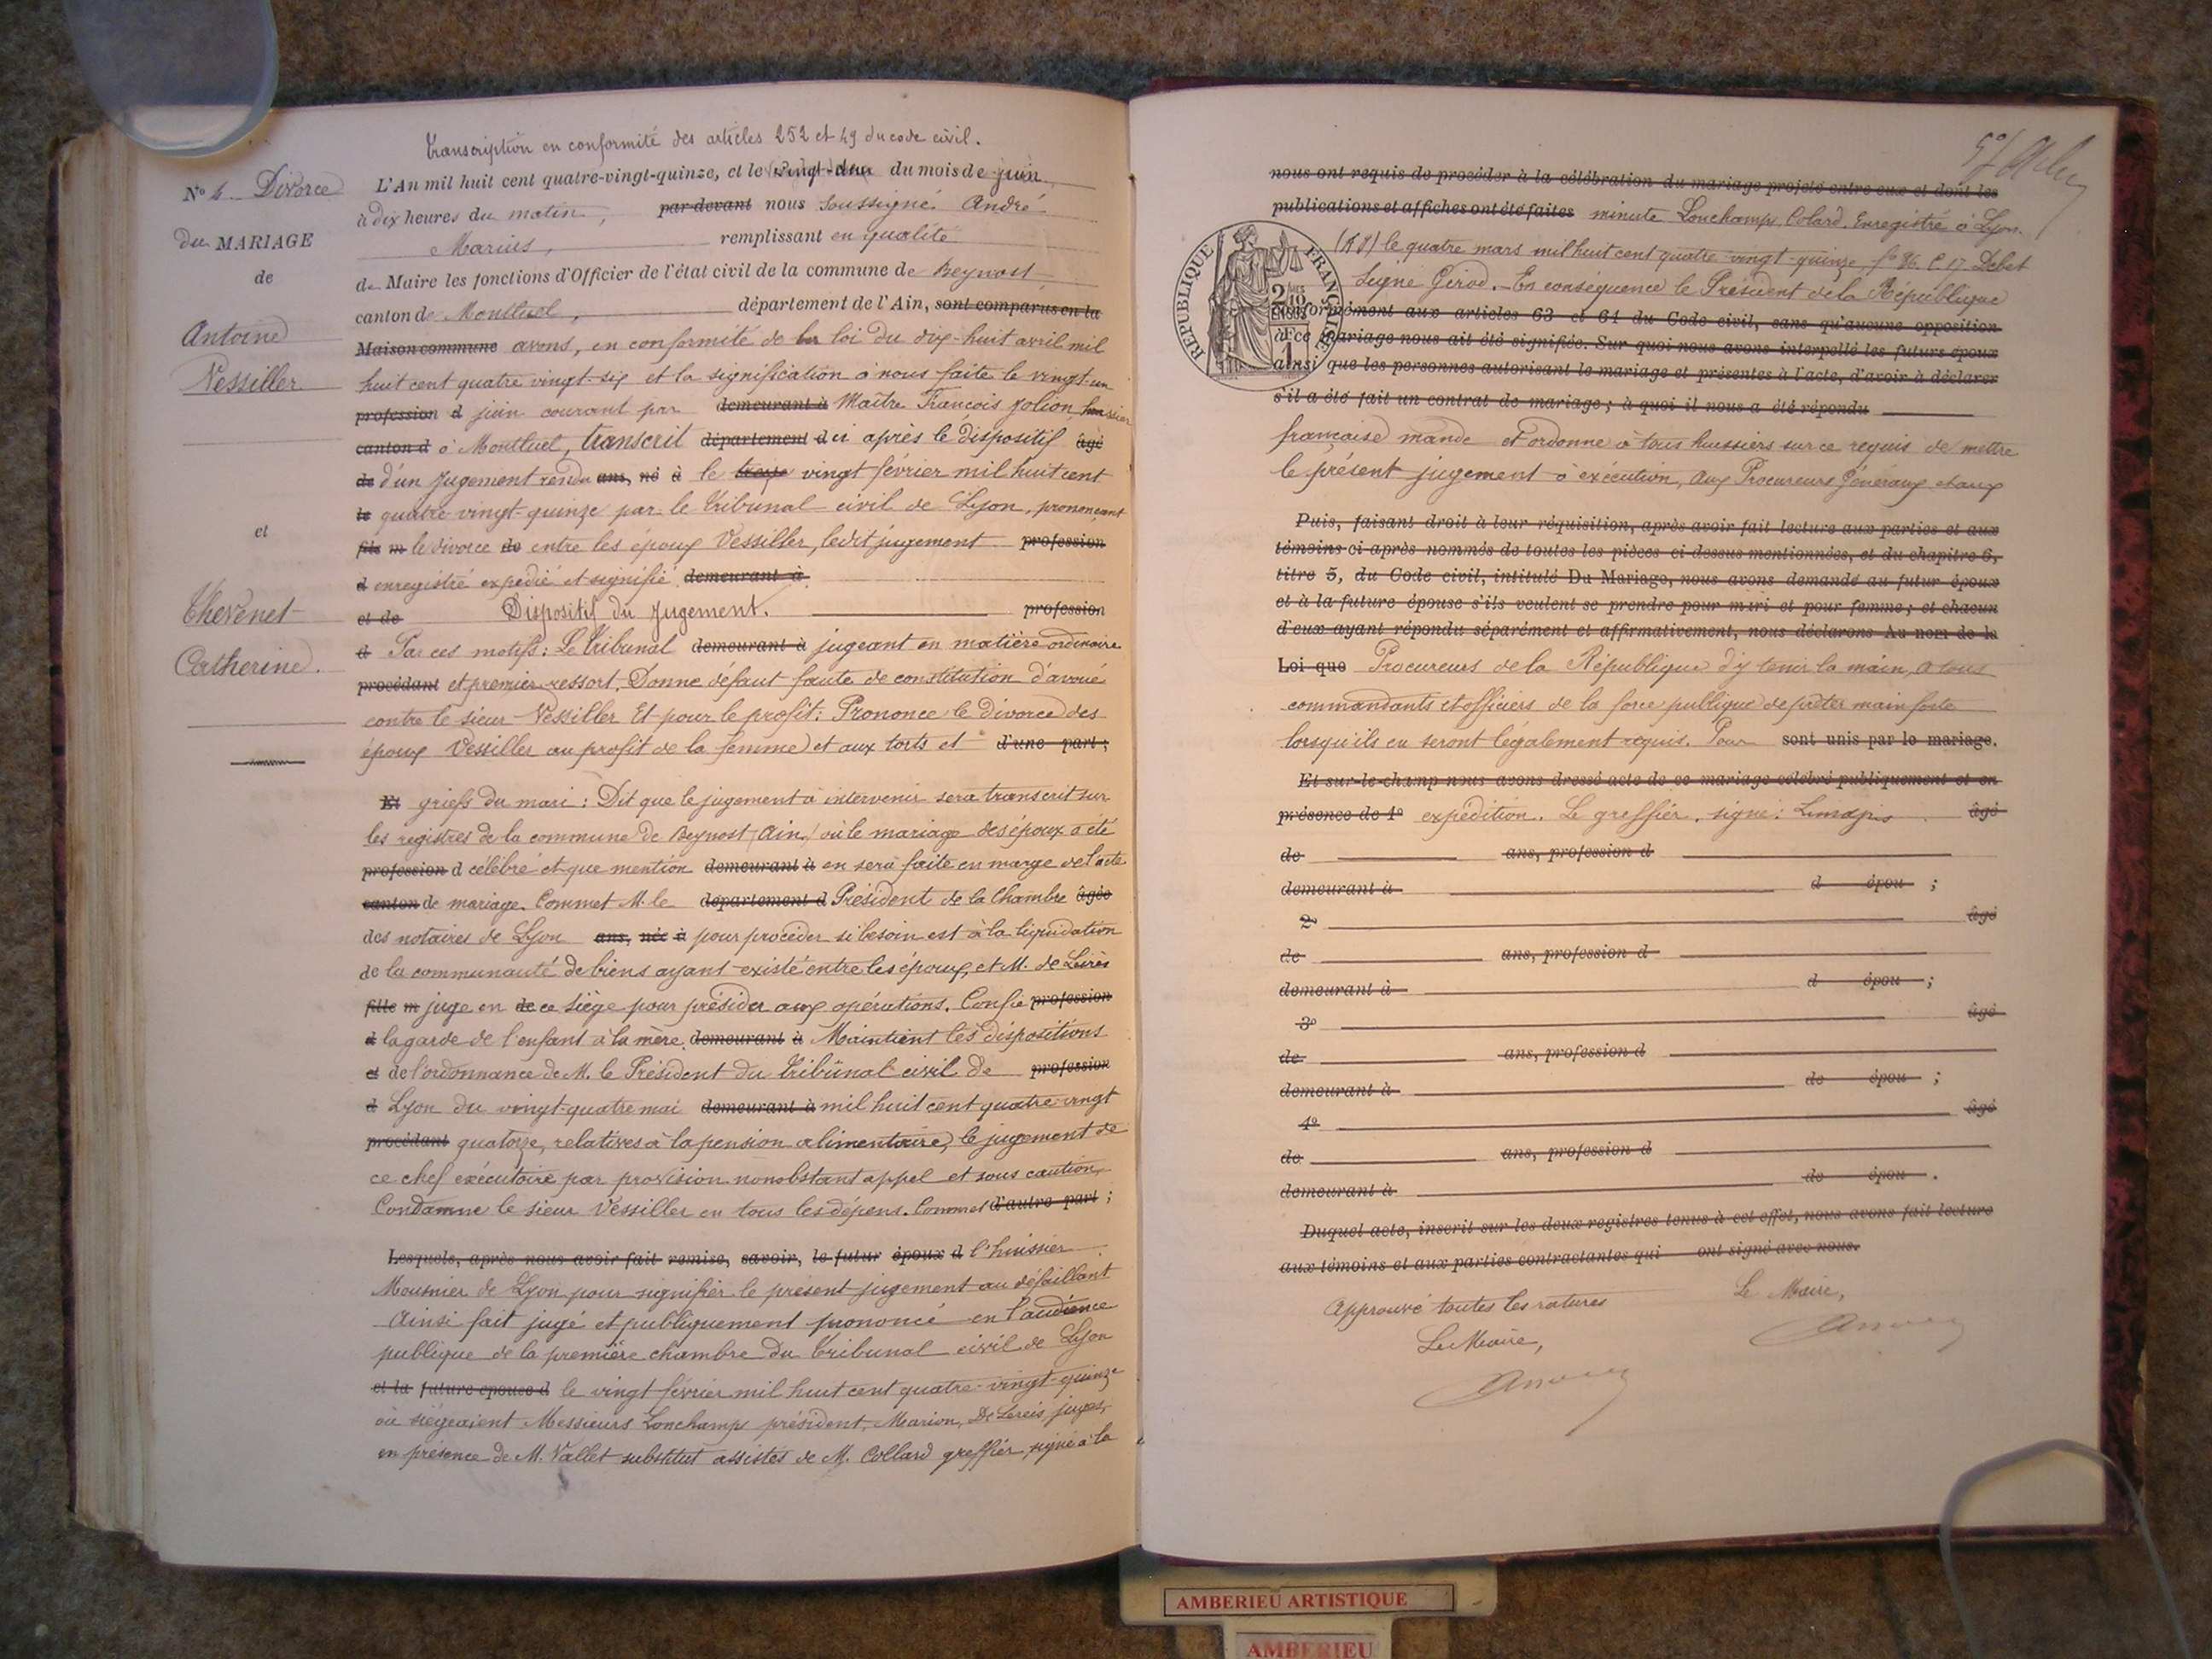 transcription en conformité des articles 252 et 49 du code civil.
N° 4 Divorce
du MARIAGE
de
Antoine
Vessiller
et
Thevenet
Catherine.
L'An mil huit cent quatre-vingt-quinze, et le vingt-deux du mois de juin
à dix heures du matin, par-devant nous soussigné André
Marius, remplissant en qualité
de Maire les fonctions d'Officier de l'état civil de la commune de Beynost
canton de Montluel, département de l'Ain, sont comparus en la
Maison commune avons, en conformité de la loi du dix-huit avril mil
huit cent quatre vingt-six et la signification à nous faite le vingt-un
profession d juin courant par demeurant à Maître François Jolion huissier
canton d à Montluel, transcrit département d ci après le dispositif âgé
de d'un Jugement rendu ans, né à le treize vingt février mil huit cent
le quatre vingt-quinze par le tribunal civil de Lyon, prononçant
fils m le divorce de entre les époux Vessiller, ledit jugement profession
d enregistré expédié et signifié demeurant à
et de Dispositif du Jugement. profession
d Par ces motifs: Le tribunal demeurant à jugeant en matière ordinaire
procédant et premier ressort. Donne défaut faute de constitution d'avoué
contre le sieur Vessiller Et pour le profit: Prononce le divorce des
époux Vessiller au profit de la femme et aux torts et d'une part;
Et griefs du mari: Dit que le jugement à intervenir sera transcrit sur
les registres de la commune de Beynost (Ain) où le mariage des époux a été
profession d célébré et que mention demeurant à en sera faite en marge de l'acte
canton de mariage. Commet M. le département d Président de la Chambre âgée
des notaires de Lyon ans, née à pour procéder si besoin est à la liquidation
de la communauté de biens ayant existé entre les époux, et M. de Leiris
fille m juge en de ce siège pour présider aux opérations. Confie profession
d la garde de l'enfant à la mère. demeurant à Maintient les dispositions
et de l'ordonnance de M. le Président du tribunal civil de profession
d Lyon du vingt-quatre mai demeurant à mil huit cent quatre-vingt
procédant quatorze, relatives à la pension alimentaire, le jugement de
ce chef exécutoire par provision nonobstant appel et sous caution
Condamne le sieur Vessiller en tous les dépens. Commet d'autre part;
Lesquels, après nous avoir fait remise, savoir, le futur époux d l'huissier
Mousnier de Lyon pour signifier le présent jugement au défaillant
Ainsi fait jugé et publiquement prononcé en l'audience
publique de la première chambre du tribunal civil de Lyon
et la future épouse d le vingt février mil huit cent quatre-vingt-quinze
où siégeaient Messieurs Lonchamps président, Marion, De Lereis juges,
en présence de M. Vallet substitut assistés de M. Collard greffier, signé à la
nous ont requis de procéder à la célébration du mariage projeté entre eux et dont les
publications et affiches ont été faites minute Lonchamps, Colard. Enregistré à Lyon.
le quatre mars mil huit cent quatre-vingt-quinze f° 86. C. 17 Debet
Signé Girod. - En conséquence le Président de la République
conformément aux articles 63 et 64 du Code civil, sans qu'aucune opposition
à ce mariage nous ait été signifiée. Sur quoi nous avons interpellé les futurs époux
ainsi que les personnes autorisant le mariage et présentes à l'acte, d'avoir à déclarer
s'il a été fait un contrat de mariage; à quoi il nous a été répondu
RÉPUBLIQUE FRANÇAISE
française mande et ordonne à tous huissiers sur ce requis de mettre
le présent jugement à exécution, aux Procureurs Généraux et aux
Puis, faisant droit à leur réquisition, après avoir fait lecture aux parties et aux
témoins ci-après nommés de toutes les pièces ci-dessus mentionnées, et du chapitre 6,
titre 5, du Code civil, intitulé Du Mariage, nous avons demandé au futur époux
et à la future épouse s'ils veulent se prendre pour mari et pour femme; et chacun
d'eux ayant répondu séparément et affirmativement, nous déclarons Au nom de la
Loi que Procureurs de la République d'y tenir la main, à tous
commandants et officiers de la force publique de prêter main forte
lorsqu'ils en seront légalement requis. Pour sont unis par le mariage.
Et sur-le-champ nous avons dressé acte de ce mariage célébré publiquement et en
présence de 1° expédition. Le greffier, signé: âgé
de ans, profession d
demeurant à d épou ;
2° âgé
de ans, profession d
demeurant à d épou ;
3° âgé
de ans, profession d
demeurant à de épou ;
4° âgé
de ans, profession d
demeurant à de épou .
Duquel acte, inscrit sur les deux registres tenus à cet effet, nous avons fait lecture
aux témoins et aux parties contractantes qui ont signé avec nous.
Le Maire,
Approuvé toutes les ratures
Le Maire,
AMBERIEU ARTISTIQUE
AMBERIEU